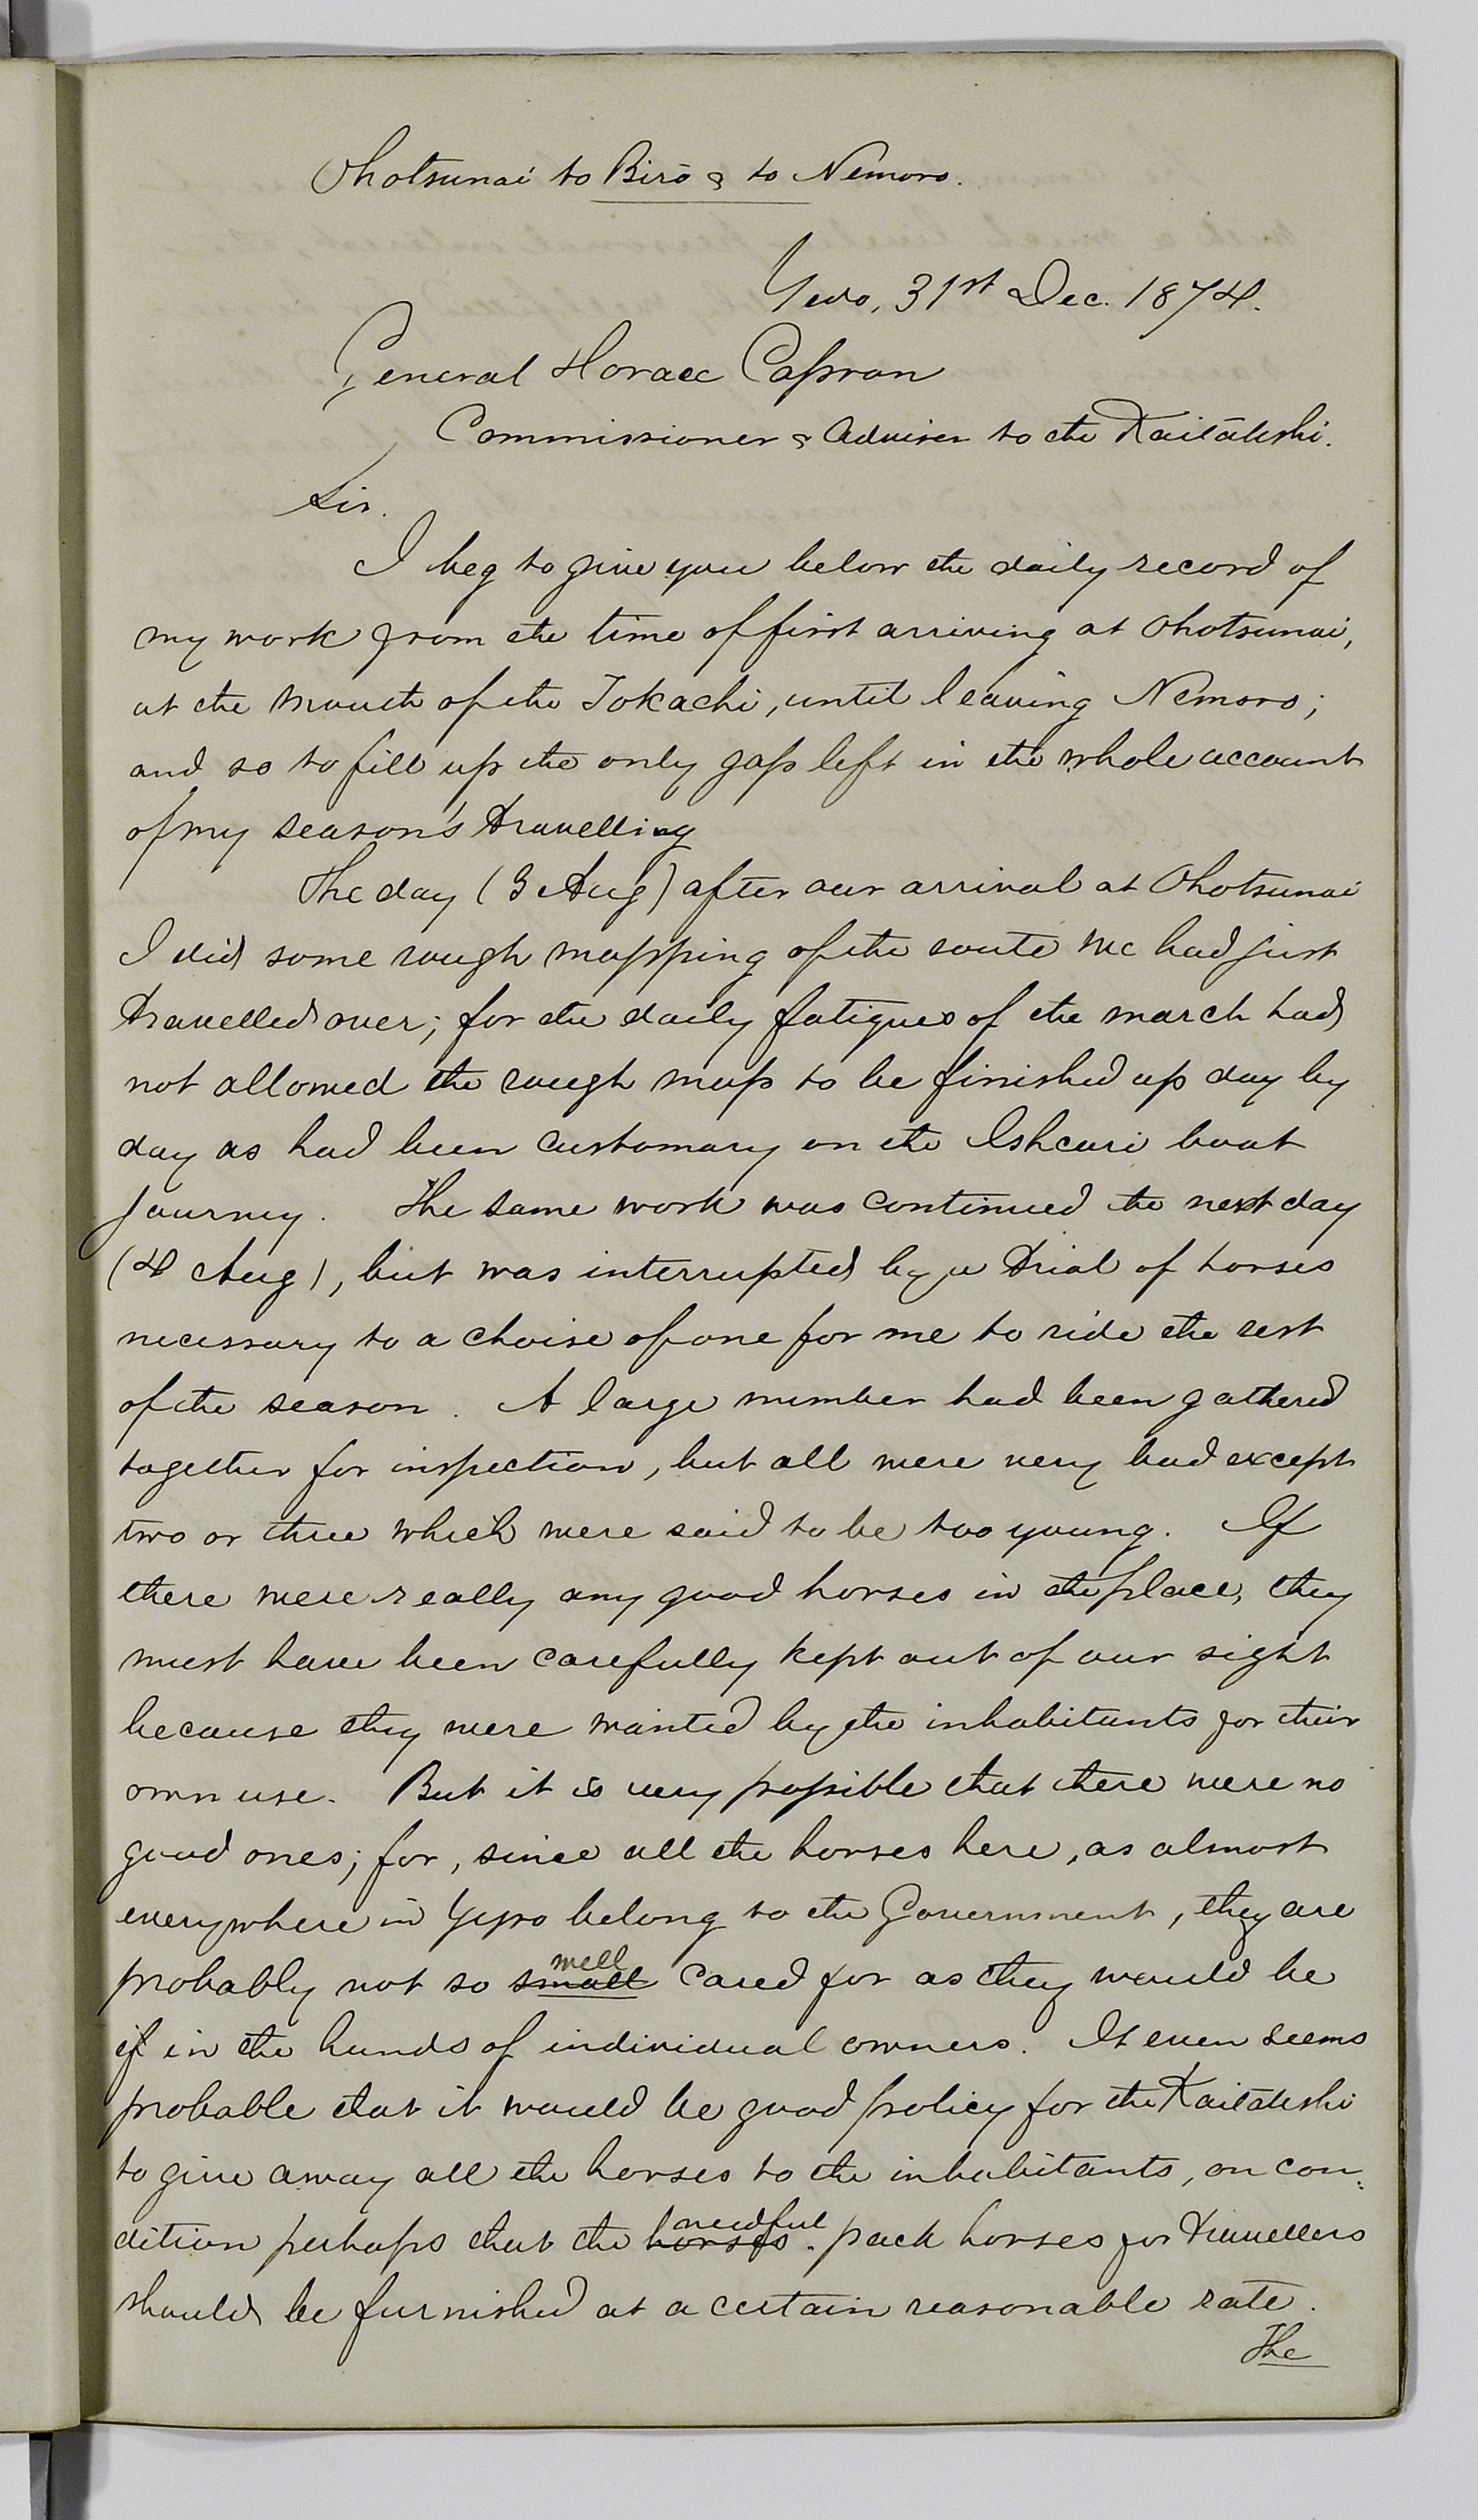 Ohotsunai to Birō & to Nemoro.
Yedo, 31st Dec. 1874.
General Horace Capron
Commissioner & Adviser to the Kaitakshi.
Sir.
I beg to give you below the daily record of
my work from the time of first arriving at Ohotsunai,
at the mouth of the Tokachi, until leaving Nemoro;
and so to fill up the only gap left in the whole account
of my season's travelling
The day (3 Aug) after our arrival at Ohotsunai
I did some rough mapping of the route we had just
travelled over; for the daily fatigues of the march had
not allowed the rough map to be finished up day by
day as had been customary on the Ishcari boat
journey. The same work was continued the next day
(4 Aug), but was interrupted by a trial of horses
necessary to a choise of one for me to ride the rest
of the season. A large number had been gathered
together for inspection, but all were very bad except
two or three which were said to be too young. If
there were really any good horses in the place, they
must have been carefully kept out of our sight
because they were wanted by the inhabitants for their
own use. But it is very possible that there were no
good ones; for, since all the horses here, as almost
everywhere in Yesso belong to the Government, they are
probably not so small well cared for as they would be
if in the hands of individual owners. It even seems
probable that it would be good policy for the Kaitakshi
to give away all the horses to the inhabitants, on con:
dition perhaps that the horses needful pack horses for travellers
should be furnished at a certain reasonable rate.
The